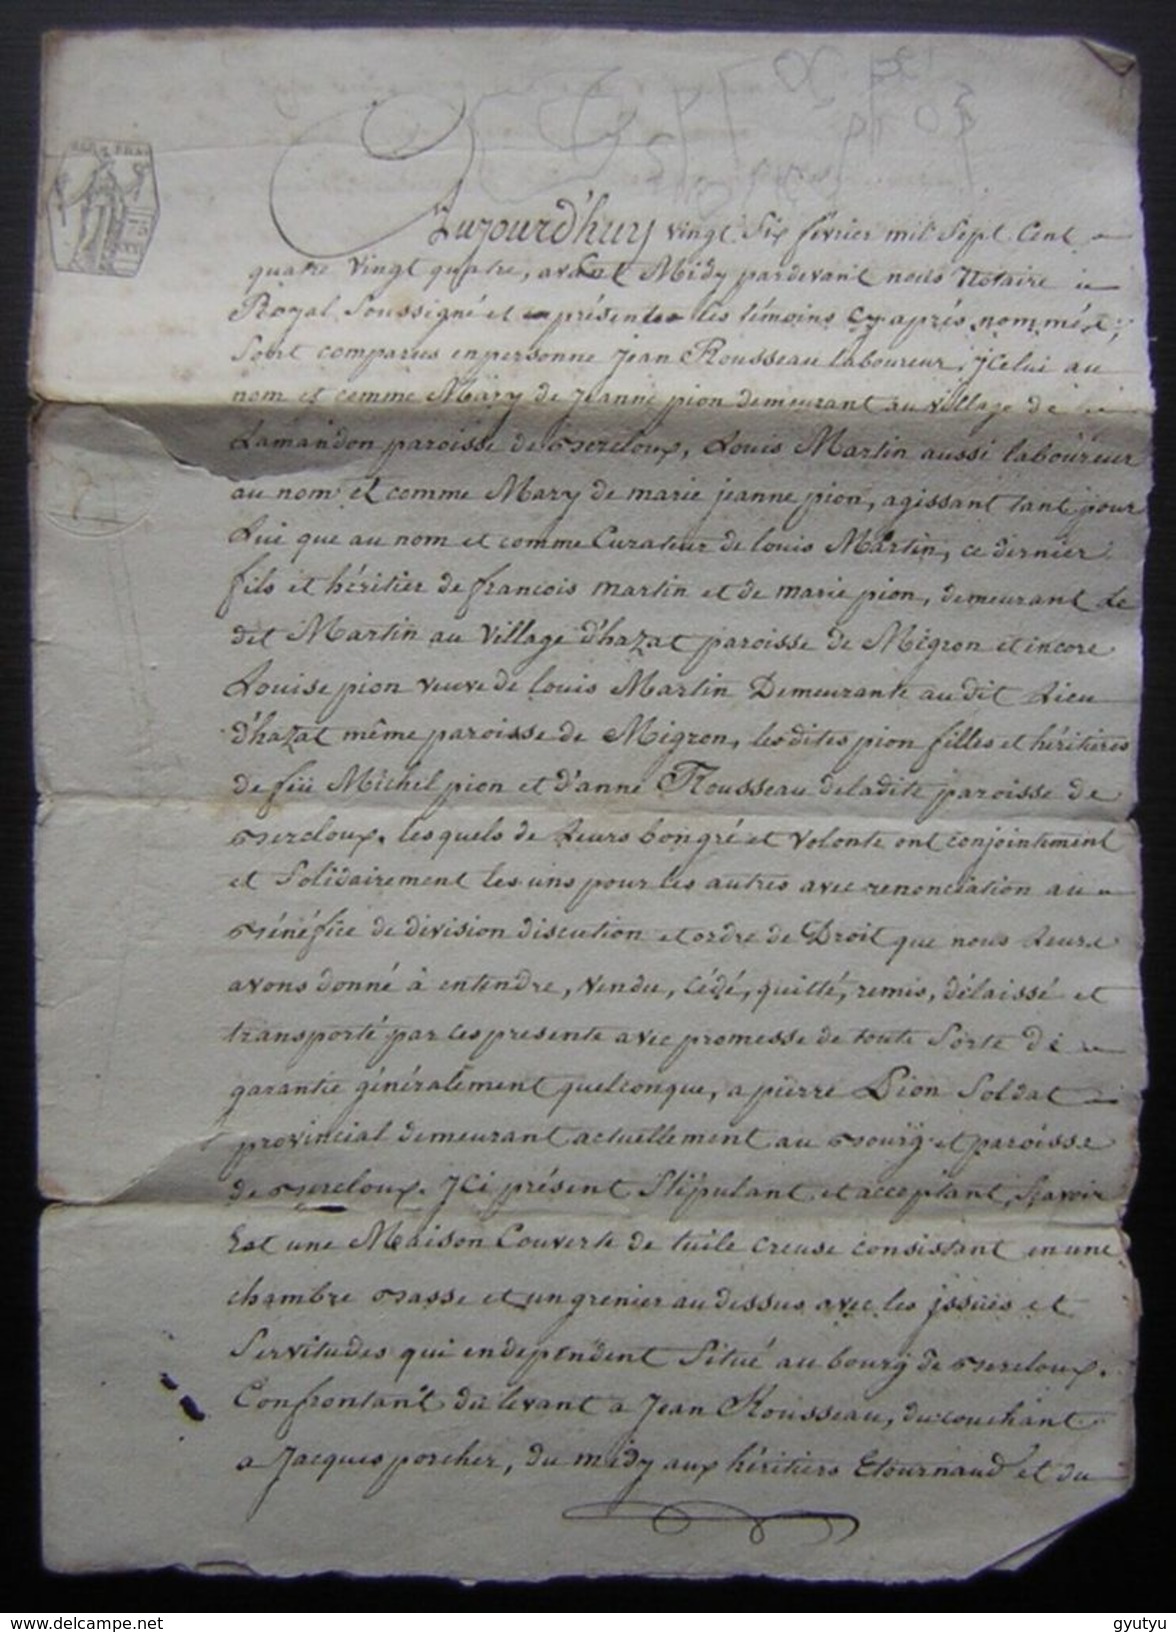 REP. FRA
Aujourd'huy vingt Six fevrier mil Sept Cent
quatre vingt quatre, avant Midy pardevant nous Notaire
Royal Soussigné et en présente les témoins Cy après nommés;
Sont comparus en personne Jean Rousseau laboureur, Jcelui au
nom et comme Mary de Jeanne pion demeurant au village de
Lamandon paroisse de Bercloux, Louis Martin aussi laboureur
au nom et comme Mary de marie jeanne pion, agissant tant pour
Lui que au nom et comme Curateur de louis Martin, ce dernier
fils et héritier de francois martin et de marie pion, demeurant Le
dit Martin au village d'hazat paroisse de Migron et incore
Louise pion veuve de louis Martin Demeurante au dit Lieu
d'hazat même paroisse de Migron, les dites pion filles et héritieres
de feü Michel pion et d'anne Rousseau de ladite paroisse de
Bercloux. les quels de Leurs bongré et volonte ont conjointement
et Solidairement les uns pour les autres avec renonciation au
Bénéfice de division discution et ordre de Droit que nous Leurs
avons donné à entendre, vendu, cédé, quitté, remis, délaissé et
transporté par ces presente avec promesse de toute Sorte de
garantie généralement quelconque, a pierre Pion Soldat
provincial demeurant actuellement au Bourg et paroisse
de Bercloux. Jci présent Stipulant et acceptant, Sçavoir
Est une Maison Couverte de tuile creuse consistant en une
chambre Basse et un grenier au dessus avec les jssües et
Servitudes qui en dependent Situé au bourg de Bercloux.
Confrontant du levant a Jean Rousseau, du couchant
a Jacques porcher, du midy aux héritiers Etournaud et du
gyutyu